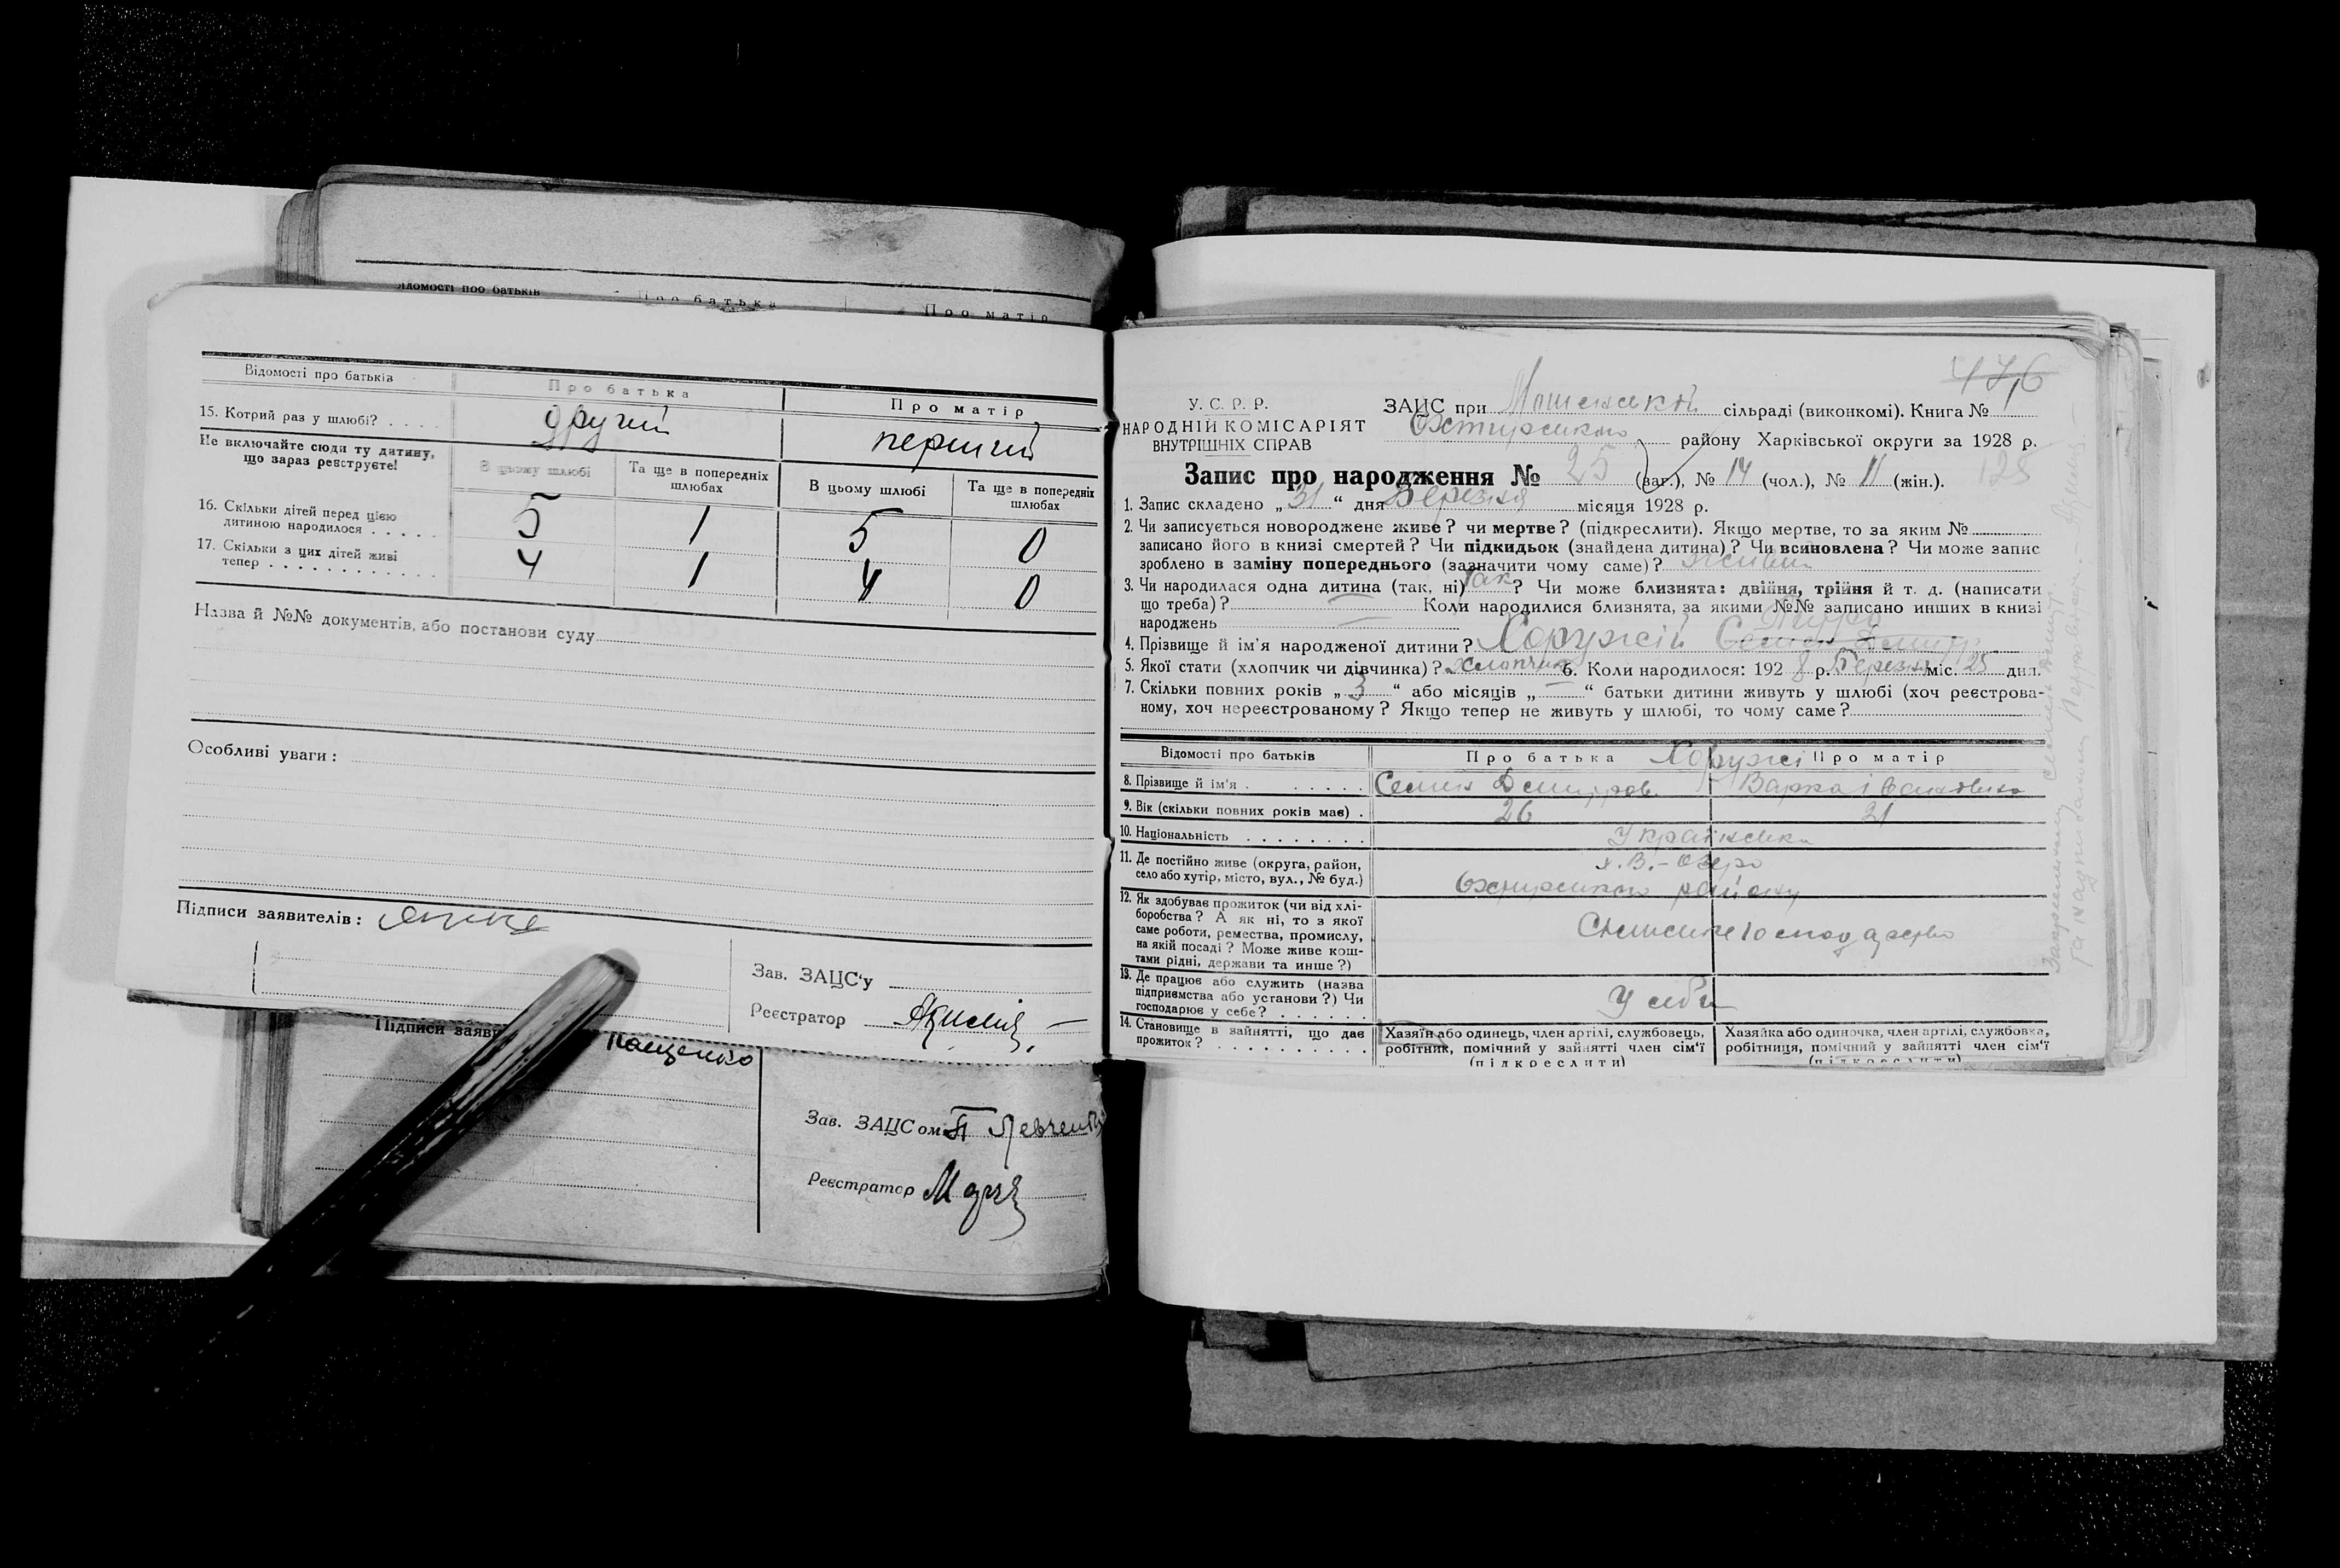 Відомості про батьків
Про батька
Про матір
15. Котрий раз у шлюбі? . . . .
другий
перший
Не включайте сюди ту дитину, що зараз реєструєте!
В цьому шлюбі
Та ще в попередніх шлюбах
В цьому шлюбі
Та ще в попередніх шлюбах
16. Скільки дітей перед цією
дитиною народилося . . . . .
5
1
5
0
17. Скільки з цих дітей живі
тепер . . . . . . . . . . . .
4
1
4
0
Назва й №№ документів, або постанови суду
Особливі уваги :
Підписи заявителів :
Зав. ЗАЦС'у
Реєстратор
Пащенко
Зав. ЗАЦСом П Левченко
Реєстратор
476
У. С. Р. Р.
НАРОДНІЙ КОМІСАРІЯТ
ВНУТРІШНІХ СПРАВ
ЗАЦС при сільраді (виконкомі). Книга № 1
Охтирського району Харківської округи за 1928 р.
Запис про народження № 25 (заг.), № 14 (чол.), № 11 (жін.).
125
1. Запис складено „ 31 “ дня Березня місяця 1928 р.
2. Чи записується новороджене живе? чи мертве? (підкреслити). Якщо мертве, то за яким №
записано його в книзі смертей? Чи підкидьок (знайдена дитина)? Чи всиновлена? Чи може запис
зроблено в заміну попереднього (зазначити чому саме)?
3. Чи народилася одна дитина (так, ні) Так? Чи може близнята: двійня, трійня й т. д. (написати
що треба)? — Коли народилися близнята, за якими №№ записано инших в книзі
народжень —
4. Прізвище й ім'я народженої дитини? Хоружій Семен
5. Якої стати (хлопчик чи дівчинка)? хлопчик 6. Коли народилося: 1928 р. Березня міс. 25 дня.
7. Скільки повних років „ 3 “ або місяців „ — “ батьки дитини живуть у шлюбі (хоч реєстрова-
ному, хоч нереєстрованому? Якщо тепер не живуть у шлюбі, то чому саме?
Відомості про батьків
Про батька
Хоружі
Про матір
8. Прізвище й ім'я . . . . . . .
Семен
Варка Івановна
9. Вік (скільки повних років має) .
26
21
10. Національність . . . . . . . .
Українська
11. Де постійно живе (округа, район,
село або хутір, місто, вул., № буд.)
х. В.-Озеро
Охтирського району
12. Як здобуває прожиток (чи від хлі-
боробства? А як ні, то з якої
саме роботи, ремества, промислу,
на якій посаді? Може живе кош-
тами рідні, держави та инше?)
Сільське господарство
13. Де працює або служить (назва
підприємства або установи?) Чи
господарює у себе? . . . . . .
У себе
14. Становище в зайнятті, що дає
прожиток? . . . . . . . . . .
Хазяїн або одинець, член артілі, службовець,
робітник, помічний у зайнятті член сім'ї
(підкреслити)
Хазяйка або одиночка, член артілі, службовка,
робітниця, помічний у зайнятті член сім'ї
(підкреслити)